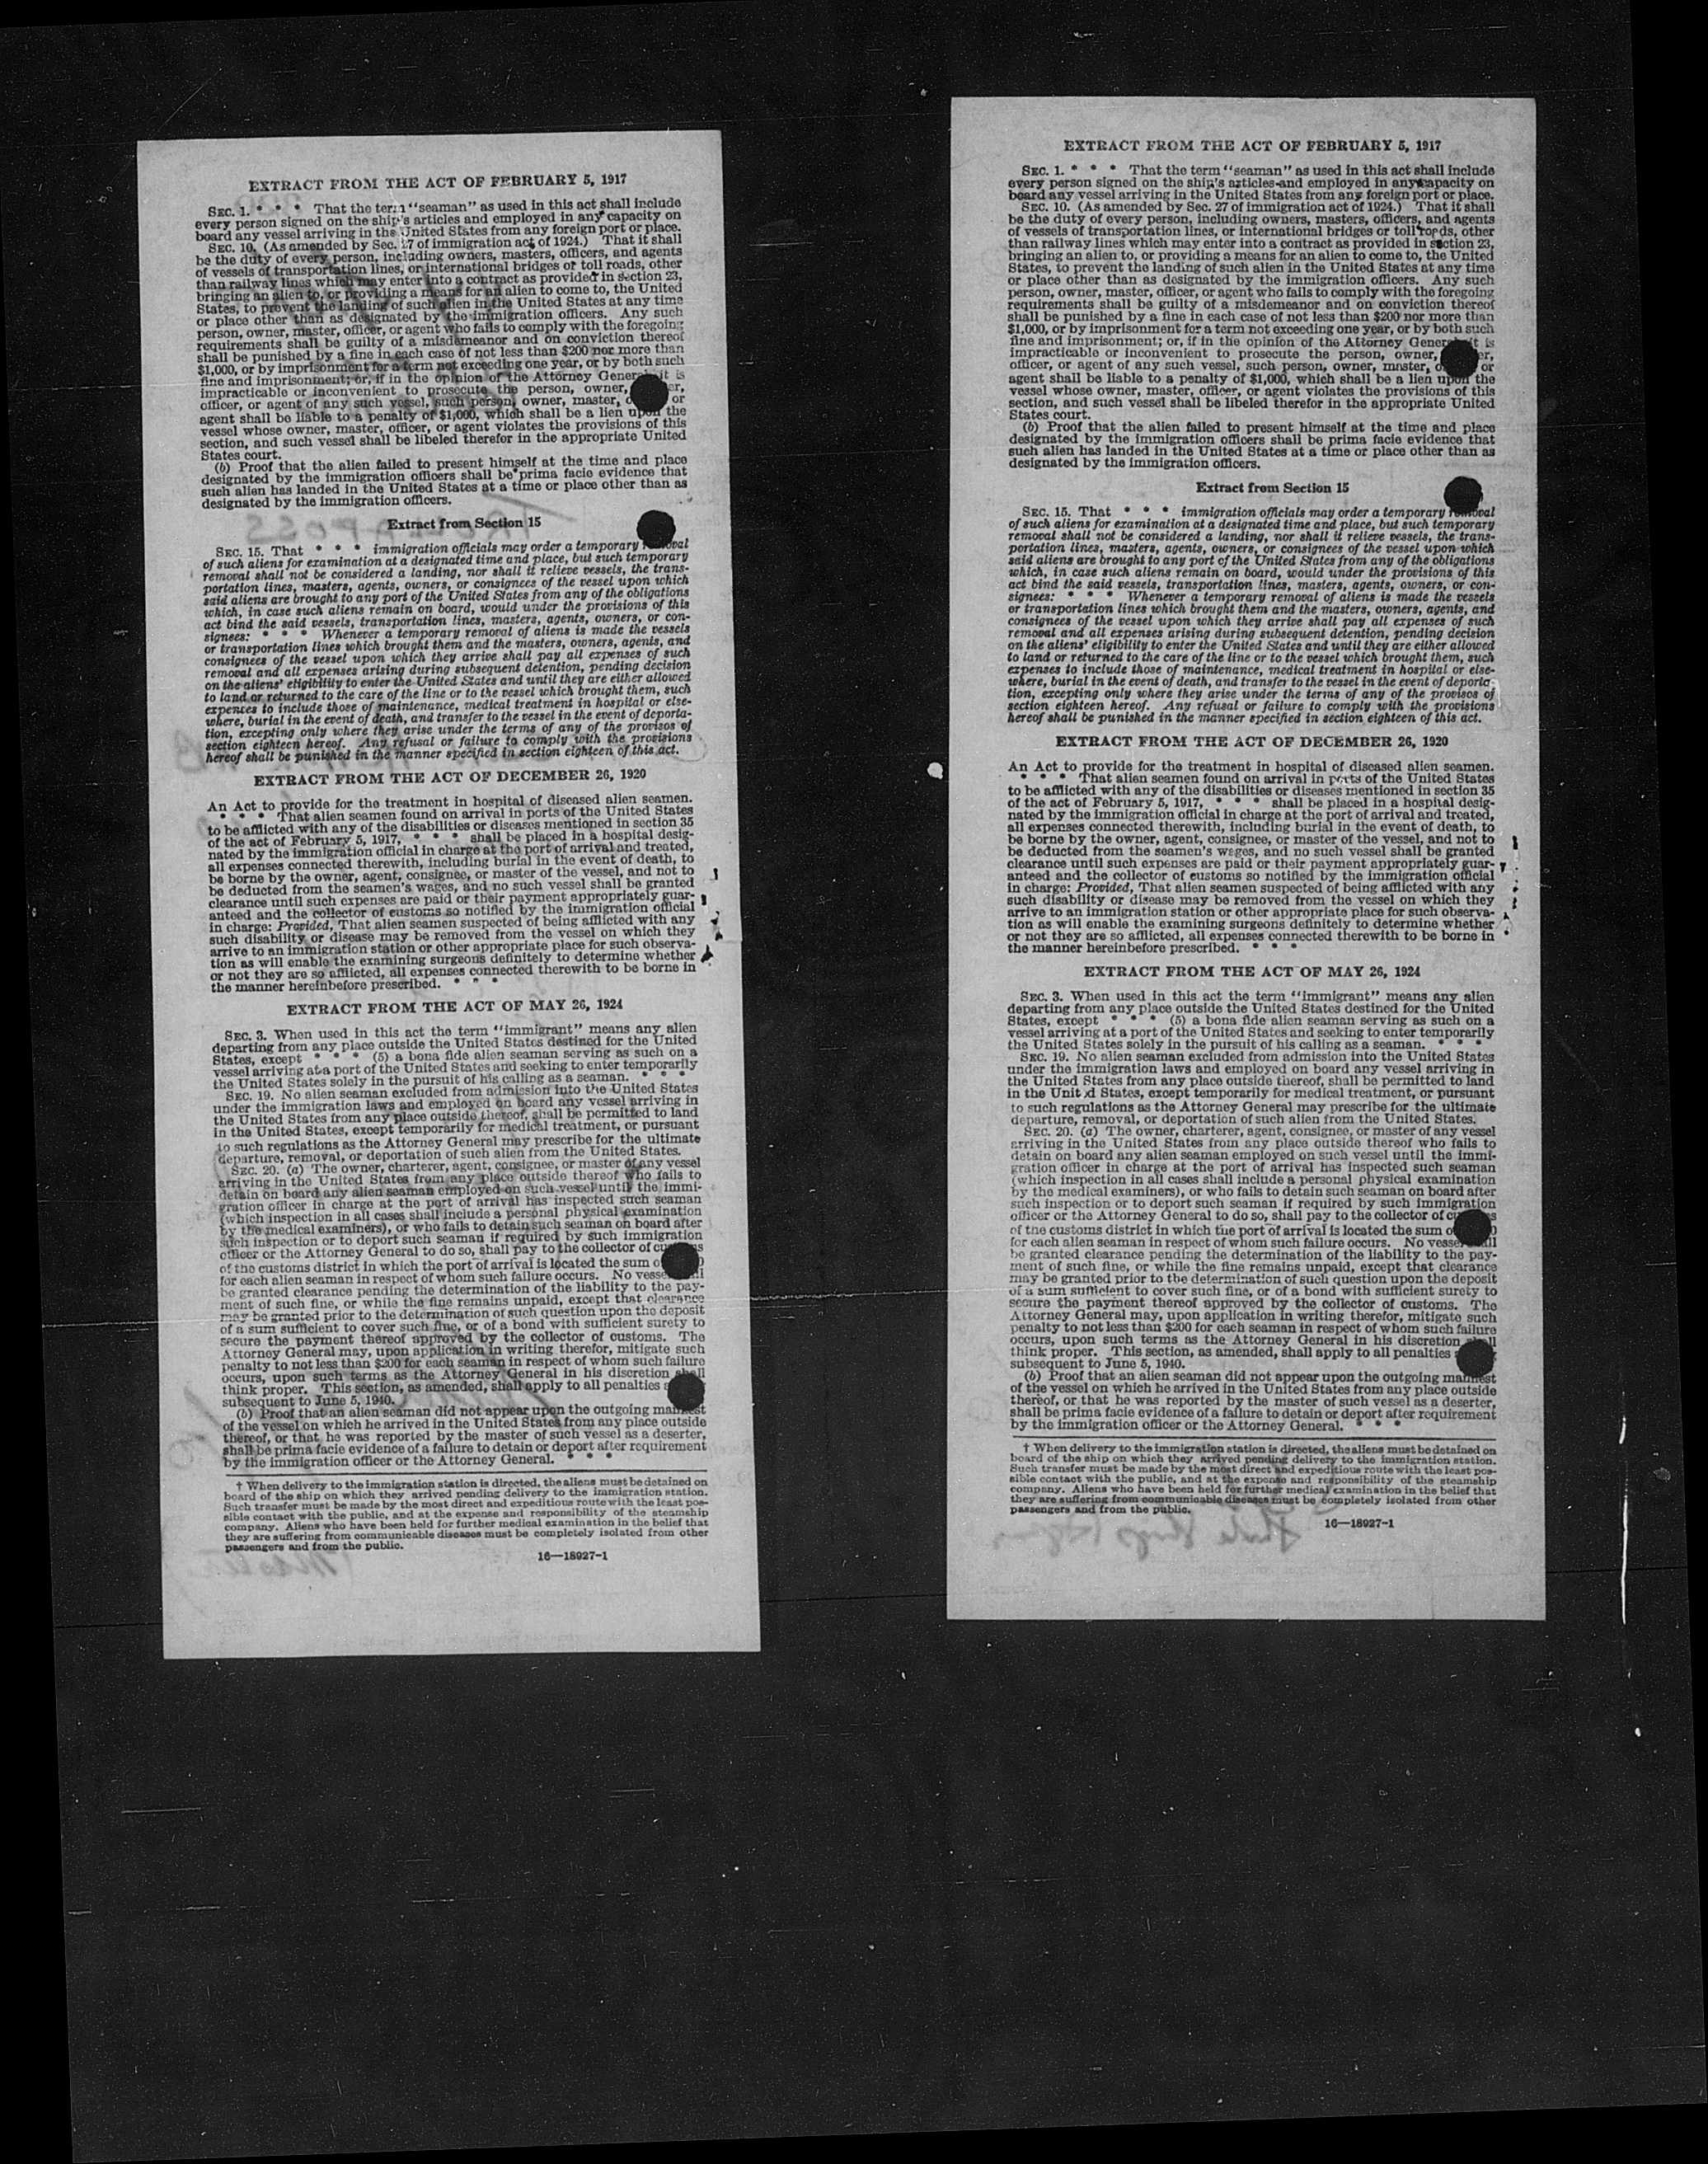 EXTRACT FROM THE ACT OF FEBRUARY 5, 1917
SEC. 1. * * * That the term "seaman" as used in this act shall include
every person signed on the ship's articles and employed in any capacity on
board any vessel arriving in the United States from any foreign port or place.
SEC. 10. (As amended by Sec. 27 of immigration act of 1924.) That it shall
be the duty of every person, including owners, masters, officers, and agents
of vessels of transportation lines, or international bridges or toll roads, other
than railway lines which may enter into a contract as provided in section 23,
bringing an alien to, or providing a means for an alien to come to, the United
States, to prevent the landing of such alien in the United States at any time
or place other than as designated by the immigration officers. Any such
person, owner, master, officer, or agent who fails to comply with the foregoing
requirements shall be guilty of a misdemeanor and on conviction thereof
shall be punished by a fine in each case of not less than $200 nor more than
$1,000, or by imprisonment for a term not exceeding one year, or by both such
fine and imprisonment; or, if in the opinion of the Attorney General it is
impracticable or inconvenient to prosecute the person, owner, er,
officer, or agent of any such vessel, such person, owner, master, o or
agent shall be liable to a penalty of $1,000, which shall be a lien upon the
vessel whose owner, master, officer, or agent violates the provisions of this
section, and such vessel shall be libeled therefor in the appropriate United
States court.
(b) Proof that the alien failed to present himself at the time and place
designated by the immigration officers shall be prima facie evidence that
such alien has landed in the United States at a time or place other than as
designated by the immigration officers.
Extract from Section 15
SEC. 15. That * * * immigration officials may order a temporary removal
of such aliens for examination at a designated time and place, but such temporary
removal shall not be considered a landing, nor shall it relieve vessels, the trans-
portation lines, masters, agents, owners, or consignees of the vessel upon which
said aliens are brought to any port of the United States from any of the obligations
which, in case such aliens remain on board, would under the provisions of this
act bind the said vessels, transportation lines, masters, agents, owners, or con-
signees: * * * Whenever a temporary removal of aliens is made the vessels
or transportation lines which brought them and the masters, owners, agents, and
consignees of the vessel upon which they arrive shall pay all expenses of such
removal and all expenses arising during subsequent detention, pending decision
on the aliens' eligibility to enter the United States and until they are either allowed
to land or returned to the care of the line or to the vessel which brought them, such
expenses to include those of maintenance, medical treatment in hospital or else-
where, burial in the event of death, and transfer to the vessel in the event of deporta-
tion, excepting only where they arise under the terms of any of the provisos of
section eighteen hereof. Any refusal or failure to comply with the provisions
hereof shall be punished in the manner specified in section eighteen of this act.
EXTRACT FROM THE ACT OF DECEMBER 26, 1920
An Act to provide for the treatment in hospital of diseased alien seamen.
* * * That alien seamen found on arrival in ports of the United States
to be afflicted with any of the disabilities or diseases mentioned in section 35
of the act of February 5, 1917, * * * shall be placed in a hospital desig-
nated by the immigration official in charge at the port of arrival and treated,
all expenses connected therewith, including burial in the event of death, to
be borne by the owner, agent, consignee, or master of the vessel, and not to
be deducted from the seamen's wages, and no such vessel shall be granted
clearance until such expenses are paid or their payment appropriately guar-
anteed and the collector of customs so notified by the immigration official
in charge: Provided, That alien seamen suspected of being afflicted with any
such disability or disease may be removed from the vessel on which they
arrive to an immigration station or other appropriate place for such observa-
tion as will enable the examining surgeons definitely to determine whether
or not they are so afflicted, all expenses connected therewith to be borne in
the manner hereinbefore prescribed. * * *
EXTRACT FROM THE ACT OF MAY 26, 1924
SEC. 3. When used in this act the term "immigrant" means any alien
departing from any place outside the United States destined for the United
States, except * * * (5) a bona fide alien seaman serving as such on a
vessel arriving at a port of the United States and seeking to enter temporarily
the United States solely in the pursuit of his calling as a seaman. * * *
SEC. 19. No alien seaman excluded from admission into the United States
under the immigration laws and employed on board any vessel arriving in
the United States from any place outside thereof, shall be permitted to land
in the United States, except temporarily for medical treatment, or pursuant
to such regulations as the Attorney General may prescribe for the ultimate
departure, removal, or deportation of such alien from the United States.
SEC. 20. (a) The owner, charterer, agent, consignee, or master of any vessel
arriving in the United States from any place outside thereof who fails to
detain on board any alien seaman employed on such vessel until the immi-
gration officer in charge at the port of arrival has inspected such seaman
(which inspection in all cases shall include a personal physical examination
by the medical examiners), or who fails to detain such seaman on board after
such inspection or to deport such seaman if required by such immigration
officer or the Attorney General to do so, shall pay to the collector of customs
of the customs district in which the port of arrival is located the sum of
for each alien seaman in respect of whom such failure occurs. No vessel shall
be granted clearance pending the determination of the liability to the pay-
ment of such fine, or while the fine remains unpaid, except that clearance
may be granted prior to the determination of such question upon the deposit
of a sum sufficient to cover such fine, or of a bond with sufficient surety to
secure the payment thereof approved by the collector of customs. The
Attorney General may, upon application in writing therefor, mitigate such
penalty to not less than $200 for each seaman in respect of whom such failure
occurs, upon such terms as the Attorney General in his discretion shall
think proper. This section, as amended, shall apply to all penalties
subsequent to June 5, 1940.
(b) Proof that an alien seaman did not appear upon the outgoing manifest
of the vessel on which he arrived in the United States from any place outside
thereof, or that he was reported by the master of such vessel as a deserter,
shall be prima facie evidence of a failure to detain or deport after requirement
by the immigration officer or the Attorney General. * * *
† When delivery to the immigration station is directed, the aliens must be detained on
board of the ship on which they arrived pending delivery to the immigration station.
Such transfer must be made by the most direct and expeditious route with the least pos-
sible contact with the public, and at the expense and responsibility of the steamship
company. Aliens who have been held for further medical examination in the belief that
they are suffering from communicable diseases must be completely isolated from other
passengers and from the public.
16—18927-1
EXTRACT FROM THE ACT OF FEBRUARY 5, 1917
SEC. 1. * * * That the term "seaman" as used in this act shall include
every person signed on the ship's articles and employed in any capacity on
board any vessel arriving in the United States from any foreign port or place.
SEC. 10. (As amended by Sec. 27 of immigration act of 1924.) That it shall
be the duty of every person, including owners, masters, officers, and agents
of vessels of transportation lines, or international bridges or toll roads, other
than railway lines which may enter into a contract as provided in section 23,
bringing an alien to, or providing a means for an alien to come to, the United
States, to prevent the landing of such alien in the United States at any time
or place other than as designated by the immigration officers. Any such
person, owner, master, officer, or agent who fails to comply with the foregoing
requirements shall be guilty of a misdemeanor and on conviction thereof
shall be punished by a fine in each case of not less than $200 nor more than
$1,000, or by imprisonment for a term not exceeding one year, or by both such
fine and imprisonment; or, if in the opinion of the Attorney General it is
impracticable or inconvenient to prosecute the person, owner, er,
officer, or agent of any such vessel, such person, owner, master, o or
agent shall be liable to a penalty of $1,000, which shall be a lien upon the
vessel whose owner, master, officer, or agent violates the provisions of this
section, and such vessel shall be libeled therefor in the appropriate United
States court.
(b) Proof that the alien failed to present himself at the time and place
designated by the immigration officers shall be prima facie evidence that
such alien has landed in the United States at a time or place other than as
designated by the immigration officers.
Extract from Section 15
SEC. 15. That * * * immigration officials may order a temporary removal
of such aliens for examination at a designated time and place, but such temporary
removal shall not be considered a landing, nor shall it relieve vessels, the trans-
portation lines, masters, agents, owners, or consignees of the vessel upon which
said aliens are brought to any port of the United States from any of the obligations
which, in case such aliens remain on board, would under the provisions of this
act bind the said vessels, transportation lines, masters, agents, owners, or con-
signees: * * * Whenever a temporary removal of aliens is made the vessels
or transportation lines which brought them and the masters, owners, agents, and
consignees of the vessel upon which they arrive shall pay all expenses of such
removal and all expenses arising during subsequent detention, pending decision
on the aliens' eligibility to enter the United States and until they are either allowed
to land or returned to the care of the line or to the vessel which brought them, such
expenses to include those of maintenance, medical treatment in hospital or else-
where, burial in the event of death, and transfer to the vessel in the event of deporta-
tion, excepting only where they arise under the terms of any of the provisos of
section eighteen hereof. Any refusal or failure to comply with the provisions
hereof shall be punished in the manner specified in section eighteen of this act.
EXTRACT FROM THE ACT OF DECEMBER 26, 1920
An Act to provide for the treatment in hospital of diseased alien seamen.
* * * That alien seamen found on arrival in ports of the United States
to be afflicted with any of the disabilities or diseases mentioned in section 35
of the act of February 5, 1917, * * * shall be placed in a hospital desig-
nated by the immigration official in charge at the port of arrival and treated,
all expenses connected therewith, including burial in the event of death, to
be borne by the owner, agent, consignee, or master of the vessel, and not to
be deducted from the seamen's wages, and no such vessel shall be granted
clearance until such expenses are paid or their payment appropriately guar-
anteed and the collector of customs so notified by the immigration official
in charge: Provided, That alien seamen suspected of being afflicted with any
such disability or disease may be removed from the vessel on which they
arrive to an immigration station or other appropriate place for such observa-
tion as will enable the examining surgeons definitely to determine whether
or not they are so afflicted, all expenses connected therewith to be borne in
the manner hereinbefore prescribed. * * *
EXTRACT FROM THE ACT OF MAY 26, 1924
SEC. 3. When used in this act the term "immigrant" means any alien
departing from any place outside the United States destined for the United
States, except * * * (5) a bona fide alien seaman serving as such on a
vessel arriving at a port of the United States and seeking to enter temporarily
the United States solely in the pursuit of his calling as a seaman. * * *
SEC. 19. No alien seaman excluded from admission into the United States
under the immigration laws and employed on board any vessel arriving in
the United States from any place outside thereof, shall be permitted to land
in the United States, except temporarily for medical treatment, or pursuant
to such regulations as the Attorney General may prescribe for the ultimate
departure, removal, or deportation of such alien from the United States.
SEC. 20. (a) The owner, charterer, agent, consignee, or master of any vessel
arriving in the United States from any place outside thereof who fails to
detain on board any alien seaman employed on such vessel until the immi-
gration officer in charge at the port of arrival has inspected such seaman
(which inspection in all cases shall include a personal physical examination
by the medical examiners), or who fails to detain such seaman on board after
such inspection or to deport such seaman if required by such immigration
officer or the Attorney General to do so, shall pay to the collector of customs
of the customs district in which the port of arrival is located the sum of
for each alien seaman in respect of whom such failure occurs. No vessel shall
be granted clearance pending the determination of the liability to the pay-
ment of such fine, or while the fine remains unpaid, except that clearance
may be granted prior to the determination of such question upon the deposit
of a sum sufficient to cover such fine, or of a bond with sufficient surety to
secure the payment thereof approved by the collector of customs. The
Attorney General may, upon application in writing therefor, mitigate such
penalty to not less than $200 for each seaman in respect of whom such failure
occurs, upon such terms as the Attorney General in his discretion shall
think proper. This section, as amended, shall apply to all penalties
subsequent to June 5, 1940.
(b) Proof that an alien seaman did not appear upon the outgoing manifest
of the vessel on which he arrived in the United States from any place outside
thereof, or that he was reported by the master of such vessel as a deserter,
shall be prima facie evidence of a failure to detain or deport after requirement
by the immigration officer or the Attorney General. * * *
† When delivery to the immigration station is directed, the aliens must be detained on
board of the ship on which they arrived pending delivery to the immigration station.
Such transfer must be made by the most direct and expeditious route with the least pos-
sible contact with the public, and at the expense and responsibility of the steamship
company. Aliens who have been held for further medical examination in the belief that
they are suffering from communicable diseases must be completely isolated from other
passengers and from the public.
16—18927-1